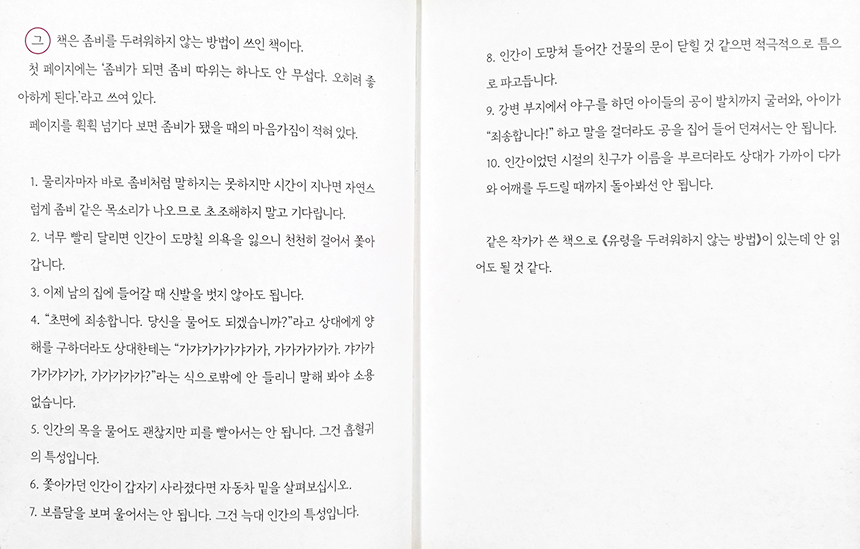 그 책은 좀비를 두려워하지 않는 방법이 쓰인 책이다.
첫 페이지에는 ‘좀비가 되면 좀비 따위는 하나도 안 무섭다. 오히려 좋
아하게 된다.’라고 쓰여 있다.
페이지를 획획 넘기다 보면 좀비가 됐을 때의 마음가짐이 적혀 있다.
1. 물리자마자 바로 좀비처럼 말하지는 못하지만 시간이 지나면 자연스
럽게 좀비 같은 목소리가 나오므로 초조해하지 말고 기다립니다.
2. 너무 빨리 달리면 인간이 도망칠 의욕을 잃으니 천천히 걸어서 쫓아
갑니다.
3. 이제 남의 집에 들어갈 때 신발을 벗지 않아도 됩니다.
4. “초면에 죄송합니다. 당신을 물어도 되겠습니까?”라고 상대에게 양
해를 구하더라도 상대한테는 “가갸가가가갸가가, 가가가가가가. 갸가가
가가갸가가, 가가가가가?”라는 식으로밖에 안 들리니 말해 봐야 소용
없습니다.
5. 인간의 목을 물어도 괜찮지만 피를 빨아서는 안 됩니다. 그건 흡혈귀
의 특성입니다.
6. 쫓아가던 인간이 갑자기 사라졌다면 자동차 밑을 살펴보십시오.
7. 보름달을 보며 울어서는 안 됩니다. 그건 늑대 인간의 특성입니다.
8. 인간이 도망쳐 들어간 건물의 문이 닫힐 것 같으면 적극적으로 틈으
로 파고듭니다.
9. 강변 부지에서 야구를 하던 아이들의 공이 발치까지 굴러와, 아이가
“죄송합니다!” 하고 말을 걸더라도 공을 집어 들어 던져서는 안 됩니다.
10. 인간이었던 시절의 친구가 이름을 부르더라도 상대가 가까이 다가
와 어깨를 두드릴 때까지 돌아봐선 안 됩니다.
같은 작가가 쓴 책으로 《유령을 두려워하지 않는 방법》이 있는데 안 읽
어도 될 것 같다.